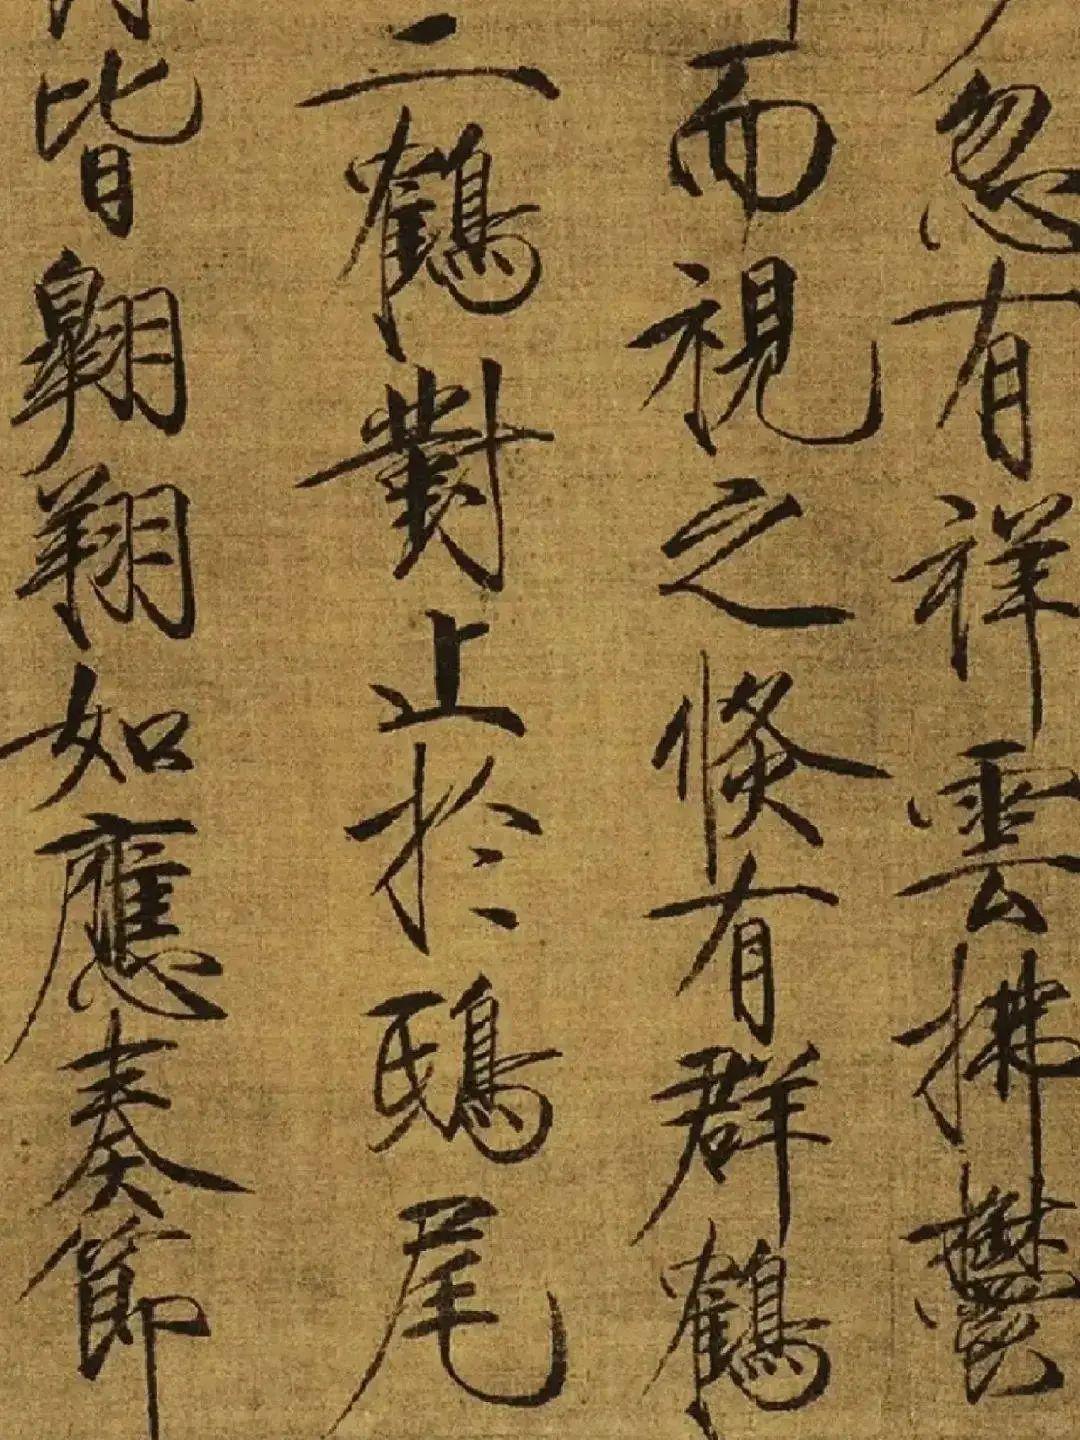 忽有祥雲拂鬱
而視之倏有群鶴
二鶴對止於鴟尾
皆翺翔如應奏節